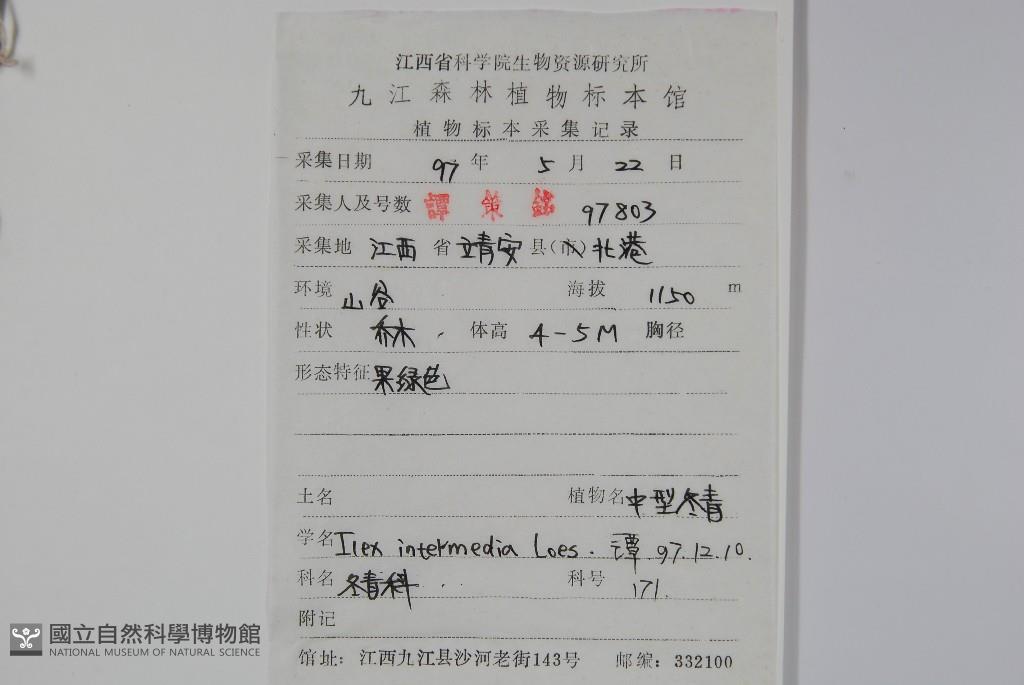 江西省科学院生物资源研究所
九江森林植物标本馆
植物标本采集记录
采集日期 97 年 5 月 22 日
采集人及号数 譚策銘 97803
采集地 江西 省 靖安 县(市) 北港
环境 山谷 海拔 1150 m
性状 乔木. 体高 4-5M 胸径
形态特征 果绿色
土名 植物名 中型冬青
学名 Ilex intermedia Loes. 谭 97.12.10.
科名 冬青科 科号 171.
附记
馆址: 江西九江县沙河老街143号 邮编: 332100
國立自然科學博物館
NATIONAL MUSEUM OF NATURAL SCIENCE